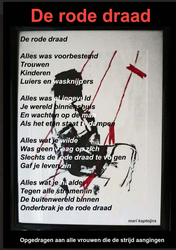 De rode draad
De rode draad
Alles was voorbestemd
Trouwen
Kinderen
Luiers en wasknijpers
Alles was
Je wereld binnenshuis
En wachten op de man
Als het eten staat te dampen
Alles wat je wilde
Was geen vraag op zich
Slechts de rode draad te volgen
Gaf je leven zin
Alles wat je
Tegen alle stromen in
De buitenwereld binnen
Onderbrak je de rode draad
mari
Opgedragen aan alle vrouwen die de strijd aangingen